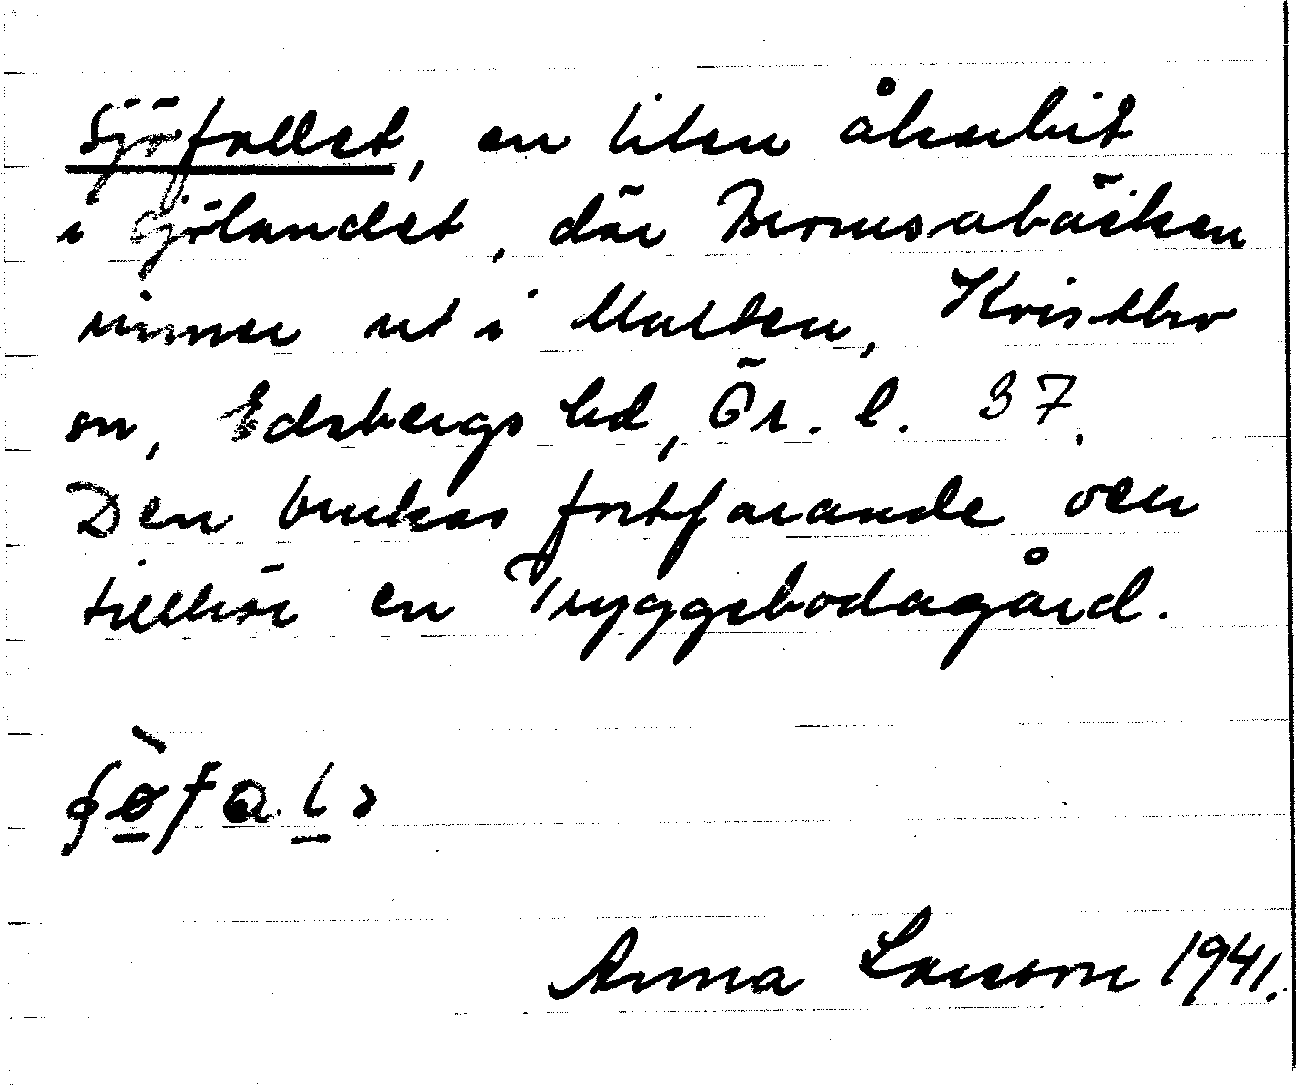 Sjöfallet, en liten åkerbit
i Sjölandet, där Bromsabäcken
rinner ut i Multen, Kvistbro
sn, Edsbergs hd, Ör. l. 37.
Den brukas fortfarande och
tillhör en Tryggebodagård.
Anna Larsson 1941.